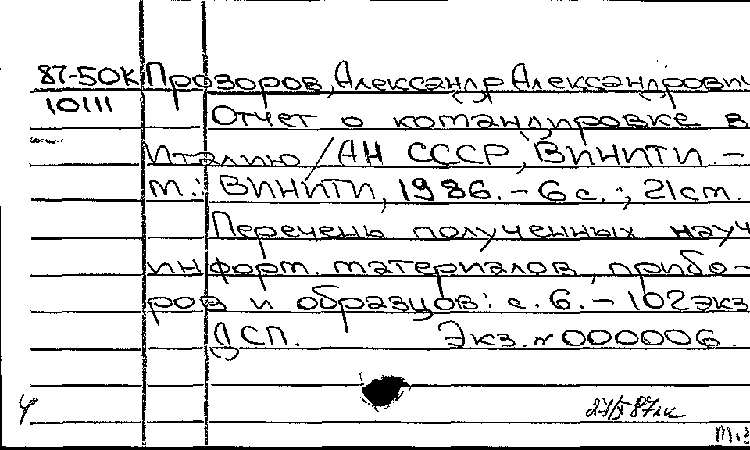 87-50К Прозоров, Александр Александрович
10111 Отчет о командировке в
Италию / АН СССР, ВИНИТИ. -
М.: ВИНИТИ, 1986. - 6 с.; 21 см.
Перечень полученных науч
информ. материалов, прибо-
ров и образцов: с. 6. - 102 экз
ДСП. Экз. № 000006
Ч